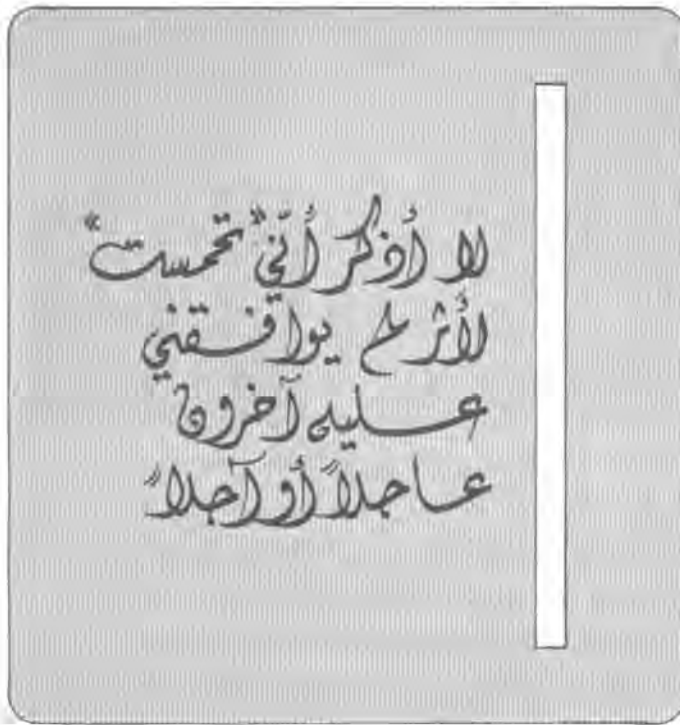 لا أذكر أنّي "تحمست"
لأثر لم يوافقني
عليه آخرون
عاجلاً أو آجلاً